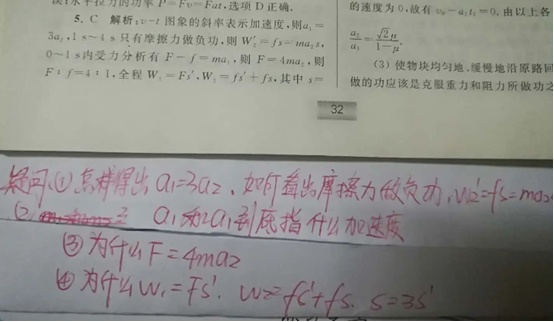 率 P=Fv=Fat,选项 D 正确.
5. C 解析:v-t 图象的斜率表示加速度,则a₁=
3a₂,1 s~4 s 只有摩擦力做负功,则 W₂'=fs=ma₂s,
0~1 s内受力分析有 F-f=ma₁,则 F=4ma₂,则
F:f=4:1,全程 W₁=Fs',W₂=fs'+fs,其中 s=
的速度为 0,故有 v₀-a₂t₂=0,由以上各
a₂/a₁=√2μ/1-μ.
(3) 使物块均匀地、缓慢地沿原路回
做的功应该是克服重力和阻力所做功之
32
疑问:① 怎样得出 a₁=3a₂、如何看出摩擦力做负功,W₂'=fs=ma₂
② a₁和a₂到底指什么加速度
③ 为什么 F=4ma₂
④ 为什么 W₁=Fs'. W₂=fs'+fs. s=3s'